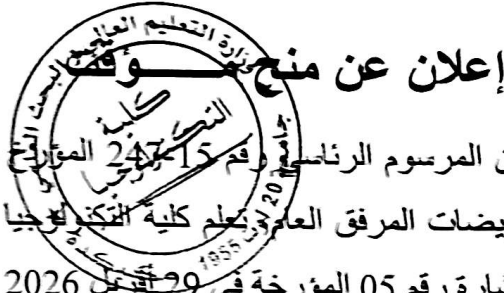 إعلان عن منح مـــؤقت
ن المرسوم الرئاسي رقم 15-247 المؤرخ
يضات المرفق العام وتعلم كلية التكنولوجيا
شارة رقم 05 المؤرخة في 29 أفريل 2026
وزارة التعليم العالي والبحث العلمي
كلية
التكنولوجيا
جامعة 20 أوت 1955
سكيكدة